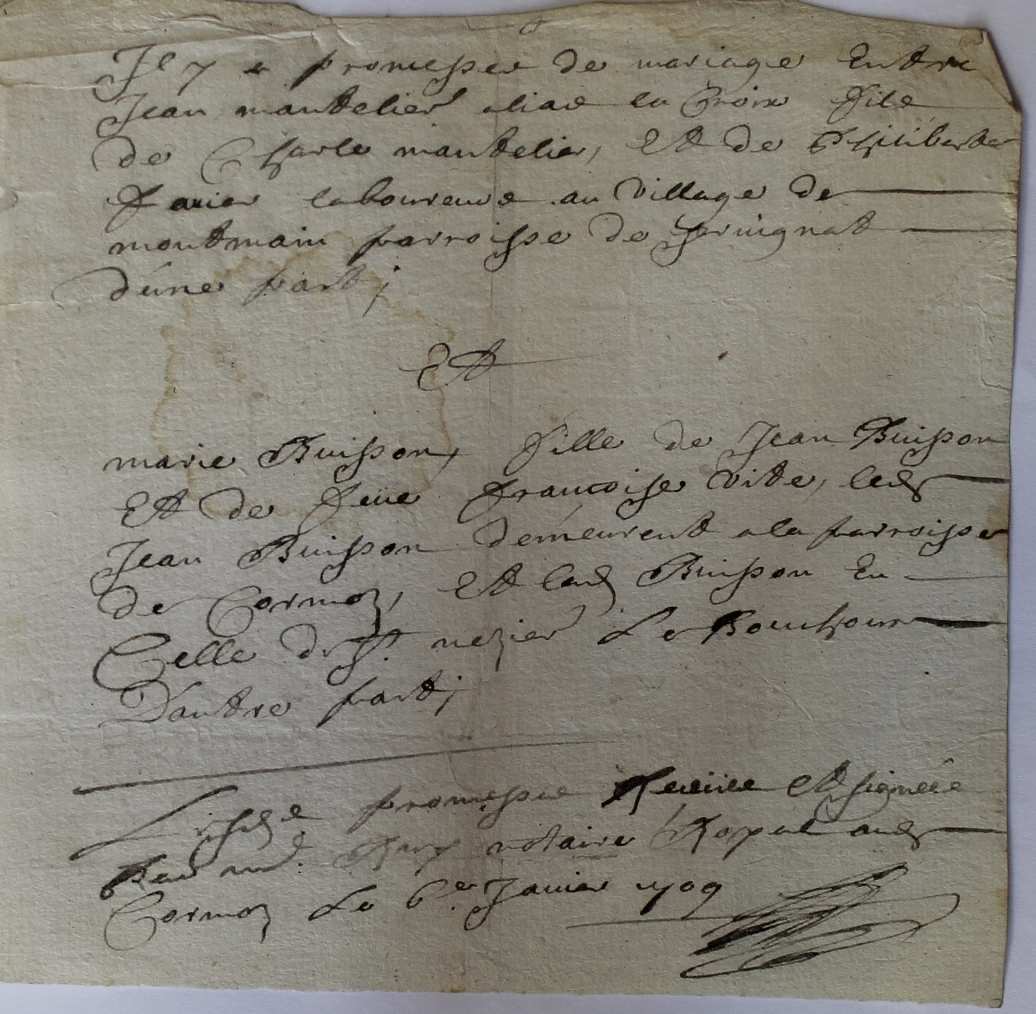 Jl y a promesses de mariage Entre
Jean mantelier alias la Croix fils
de Charle mantelier, Et de Philiberte
favier laboureurs au village de
montmain parroisse de seruignat
d'une part;
Et
marie Buisson, fille de Jean Buisson
Et de feüe françoise vite, led
Jean Buisson demeurent a la parroisse
de Cormoz, Et lad Buisson En
Celle de St nezier Le Bouchoux
D'autre part;
Lesd promesse Receüe Et signeé
Par me Rey notaire Royal aud
Cormoz Le 6er Janier 1709